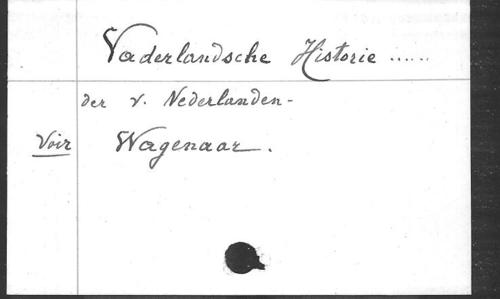 Vaderlandsche Historie ......
der v. Nederlanden-
Voir Wagenaar.